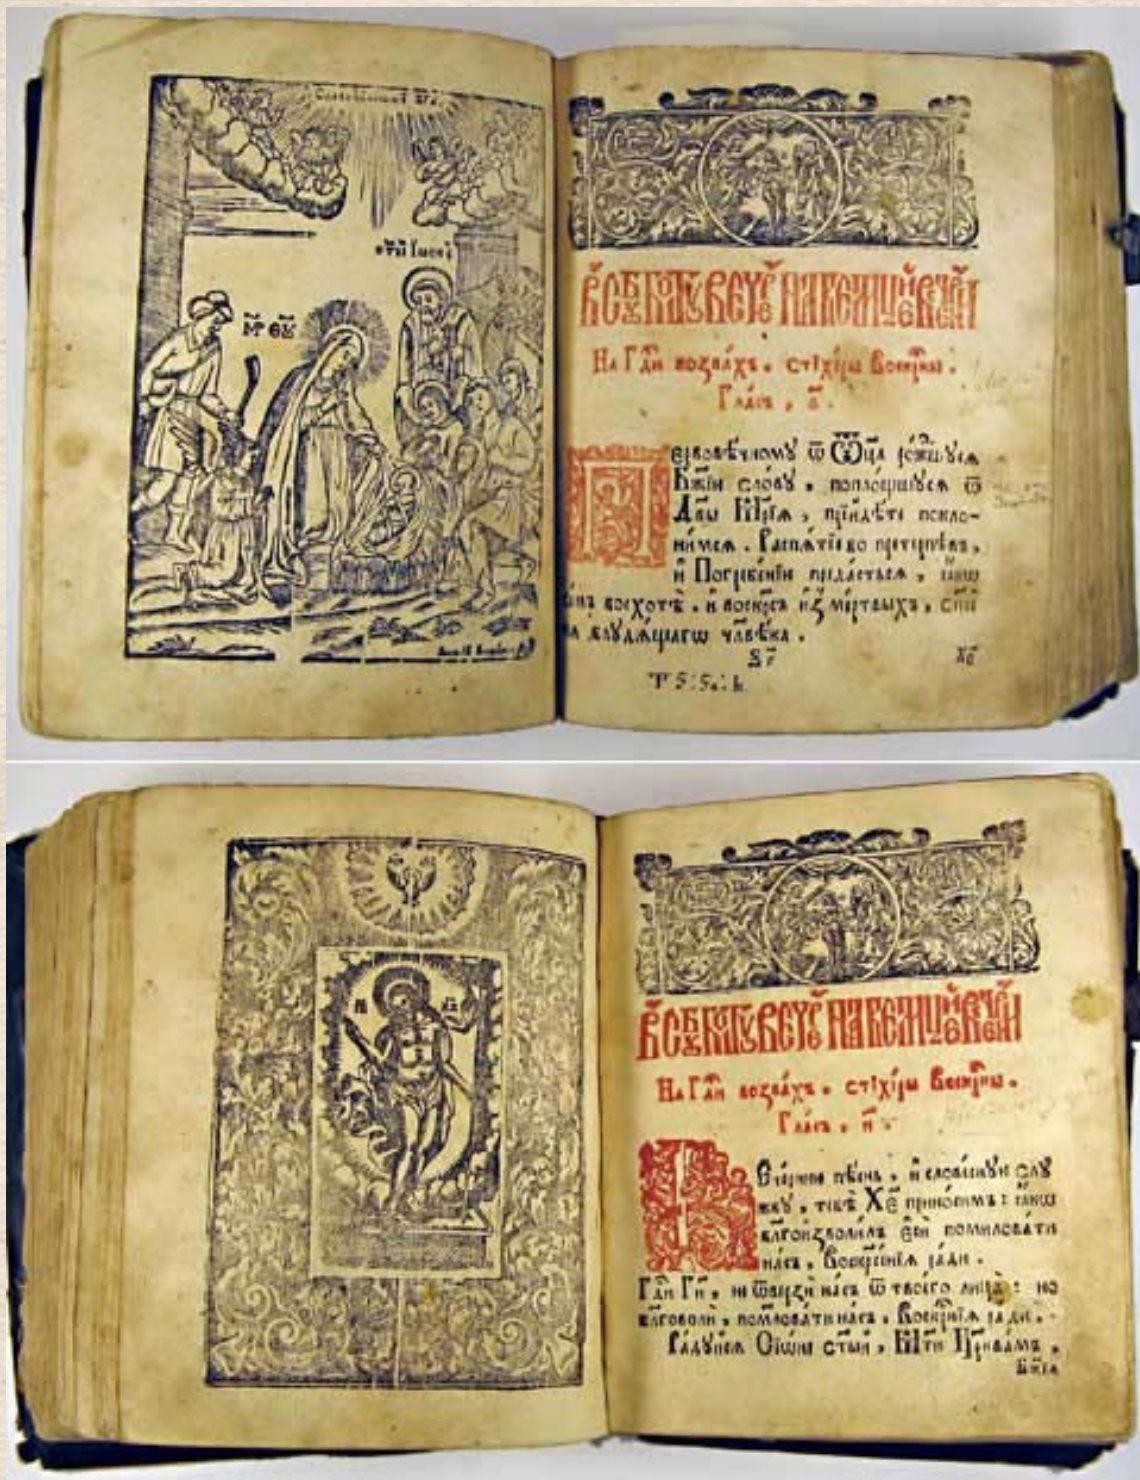 МР ѲУ
В СУББОТУ ВЕЧЕР НА ВЕЛИЦЕЙ ВЕЧЕРНИ
На Гди воззвахъ. стіхиры Воскрны.
Гласъ, а҃.
Превѣчному ѿ Ѿца рождшуся
Бжїю слову, поплощшуся ѿ
Двы Мрїя, прїидѣте покло-
нимся. Распѧтїе бо претерпѣвъ,
и Погребенїю предастьсѧ, ꙗкѡ
самъ восхотѣ. и воскрсъ из мертвыхъ, спсе
мѧ блудѧщагѡ члвѣка.
В СУББОТУ ВЕЧЕР НА ВЕЛИЦЕЙ ВЕЧЕРНИ
На Гди воззвахъ. стіхиры Воскрны.
Гласъ, и҃.
Вечернюю пѣснь, и словесную слу
жбу, тебѣ Хе приносимъ: ꙗкѡ
блгоизволилъ еси помиловати
насъ, Воскрсенїѧ ради.
Гди Ги, не ѿверзи насъ ѿ твоего лица: но
блговоли, помловати насъ, Воскрнїѧ ради.
Радуйсѧ Сїѡне стый, Мти Црквамъ,
Бжїѧ